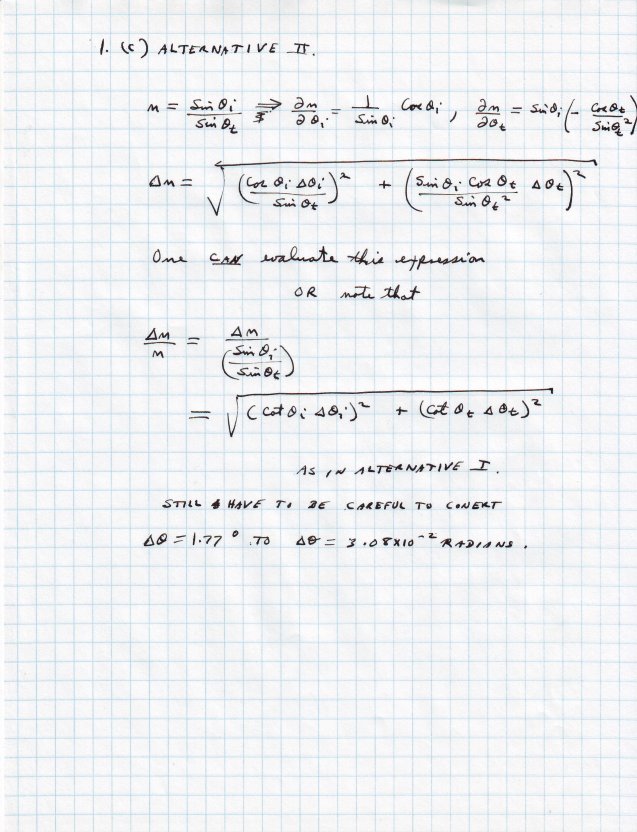 1. (c) ALTERNATIVE II.
n = Sin θi / Sin θt ⇒ ∂n/∂θi = 1/Sin θi Cos θi , ∂n/∂θt = Sin θi (- Cos θt / Sin θt²)
Δn = √( (Cos θi Δθi / Sin θt)² + (Sin θi Cos θt / Sin θt² Δθt)² )
One CAN evaluate this expression
OR note that
Δn/n = Δn / (Sin θi / Sin θt)
= √( (Cot θi Δθi)² + (Cot θt Δθt)² )
AS IN ALTERNATIVE I.
STILL HAVE TO BE CAREFUL TO CONERT
Δθ = 1.77° TO Δθ = 3.08X10⁻² RADIANS.